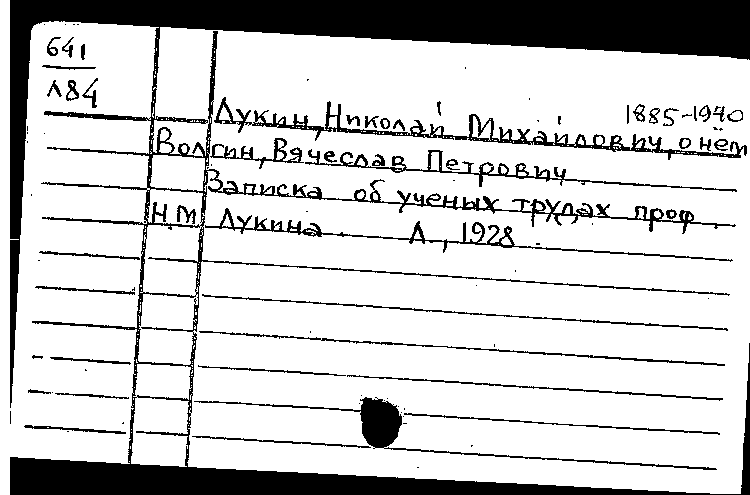 641
Л84
1885-1940
Лукин, Николай Михайлович, о нём
Волгин, Вячеслав Петрович.
Записка об ученых трудах проф.
Н.М. Лукина. Л., 1928.